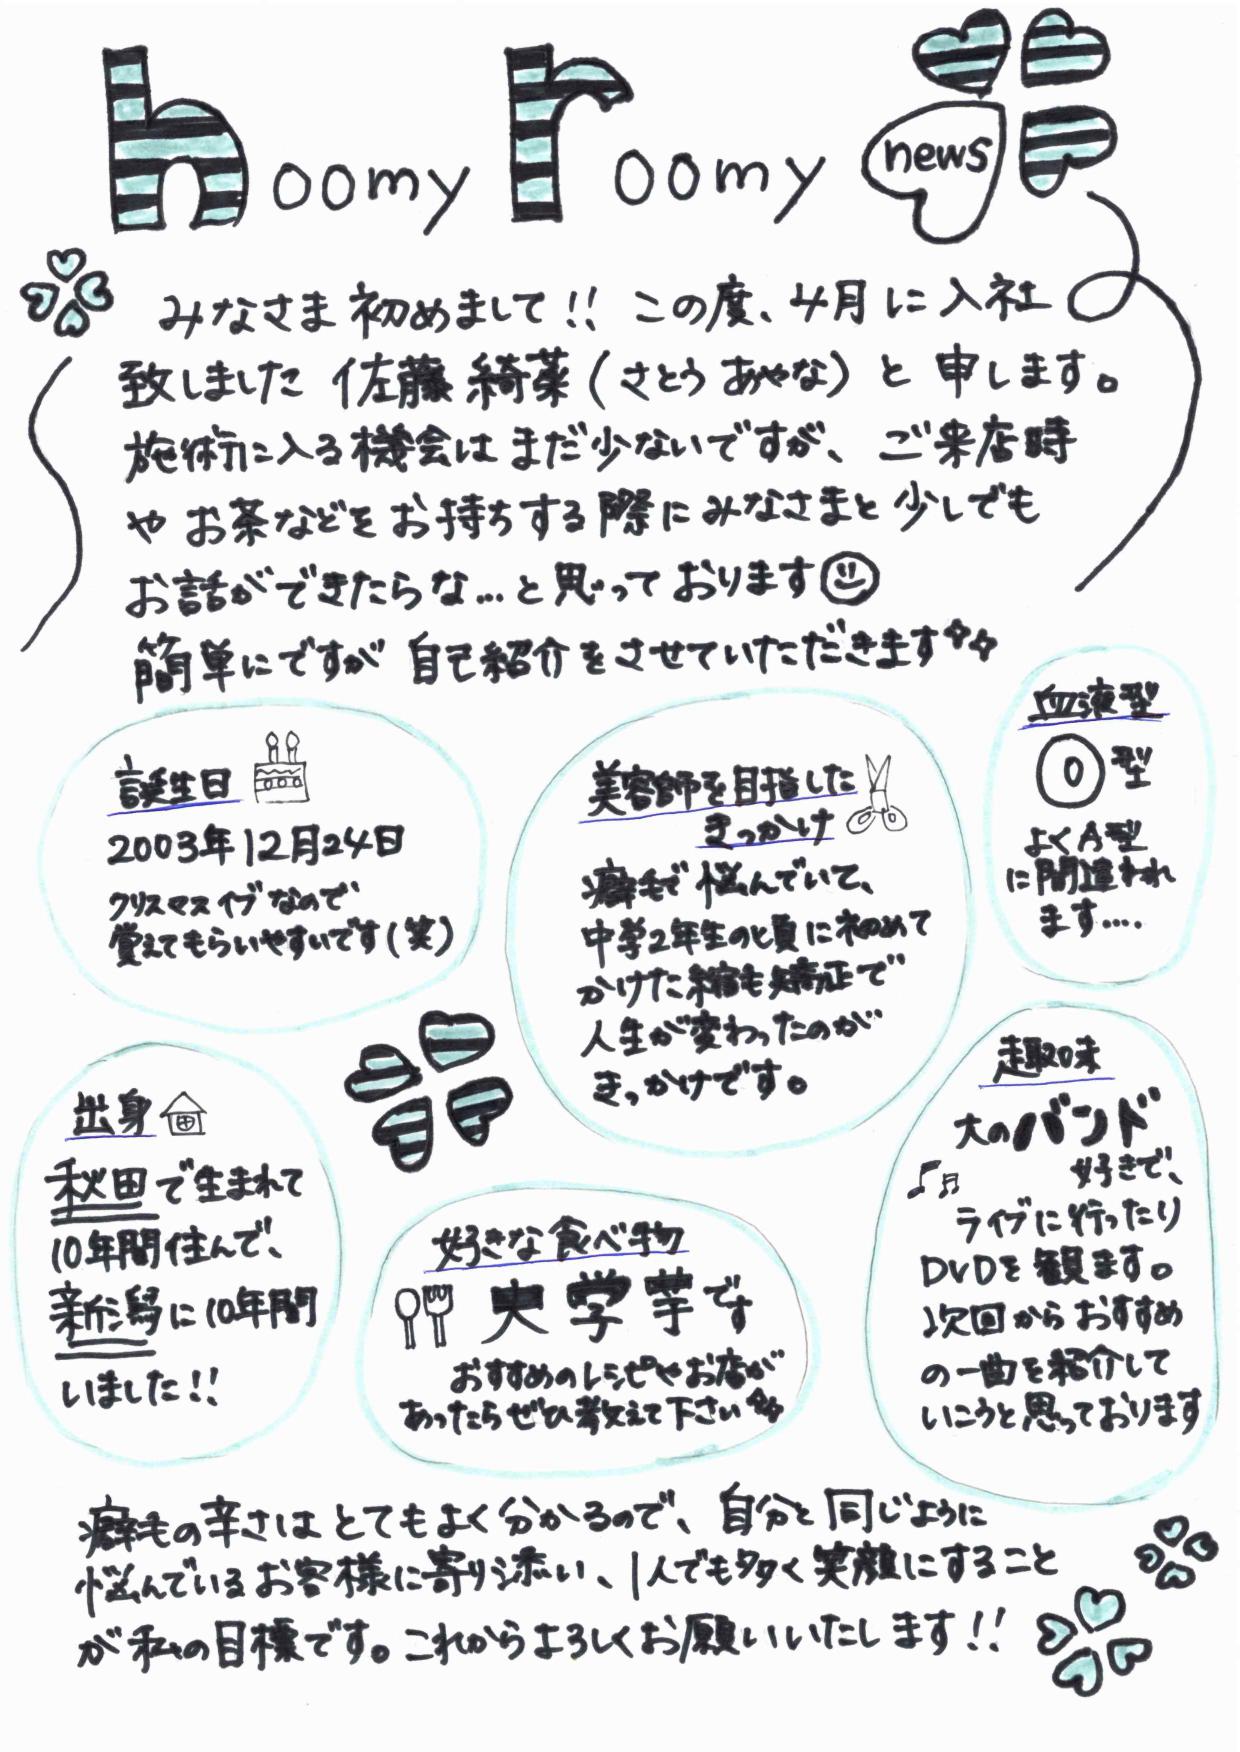 hoomy roomy news
みなさま 初めまして!! この度、4月に入社
致しました 佐藤 綺菜(さとう あやな)と 申します。
施術に入る機会は まだ少ないですが、ご来店時
や お茶などを お持ちする際に みなさまと 少しでも
お話ができたらな…と 思って おります
簡単にですが 自己紹介をさせていただきます
血液型
O型
よくA型
に間違われ
ます….
誕生日
2003年12月24日
クリスマスイブなので
覚えてもらいやすいです(笑)
美容師を目指した
きっかけ
癖毛で 悩んでいて、
中学2年生の頃に初めて
かけた縮毛矯正で
人生が変わったのが
きっかけです。
出身
秋田で生まれて
10年間住んで、
新潟に10年間
いました!!
好きな食べ物
大学芋です
おすすめのレシピやお店が
あったらぜひ教えて下さい
趣味
大のバンド
好きで、
ライブに行ったり
DVDを観ます。
次回からおすすめ
の一曲を紹介して
いこうと思っております
癖毛の辛さは とてもよく分かるので、自分と同じように
悩んでいるお客様に寄り添い、1人でも多く笑顔にすること
が私の目標です。これからよろしくお願いいたします!!